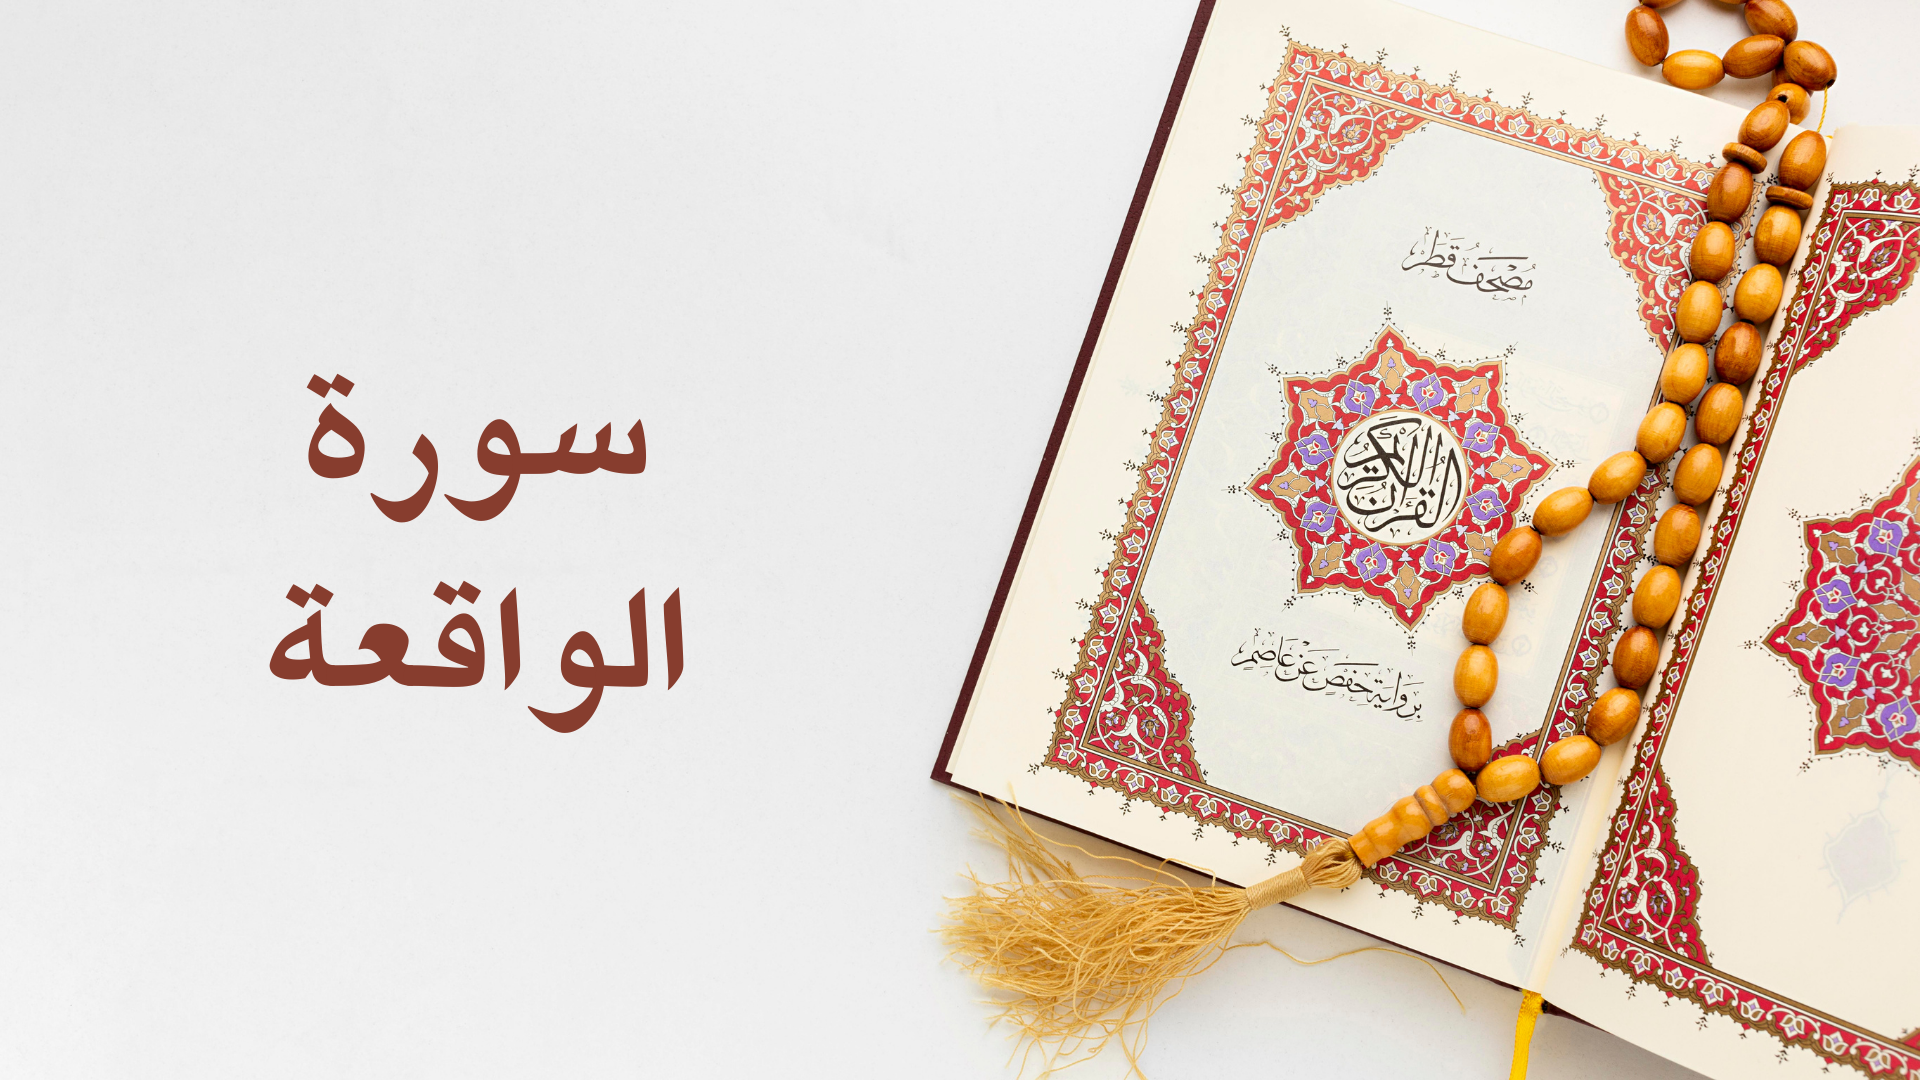 سورة
الواقعة
مُصْحَفُ قَطَر
القرآن الكريم
بِرِوَايَةِ حَفْصٍ عَنْ عَاصِمٍ